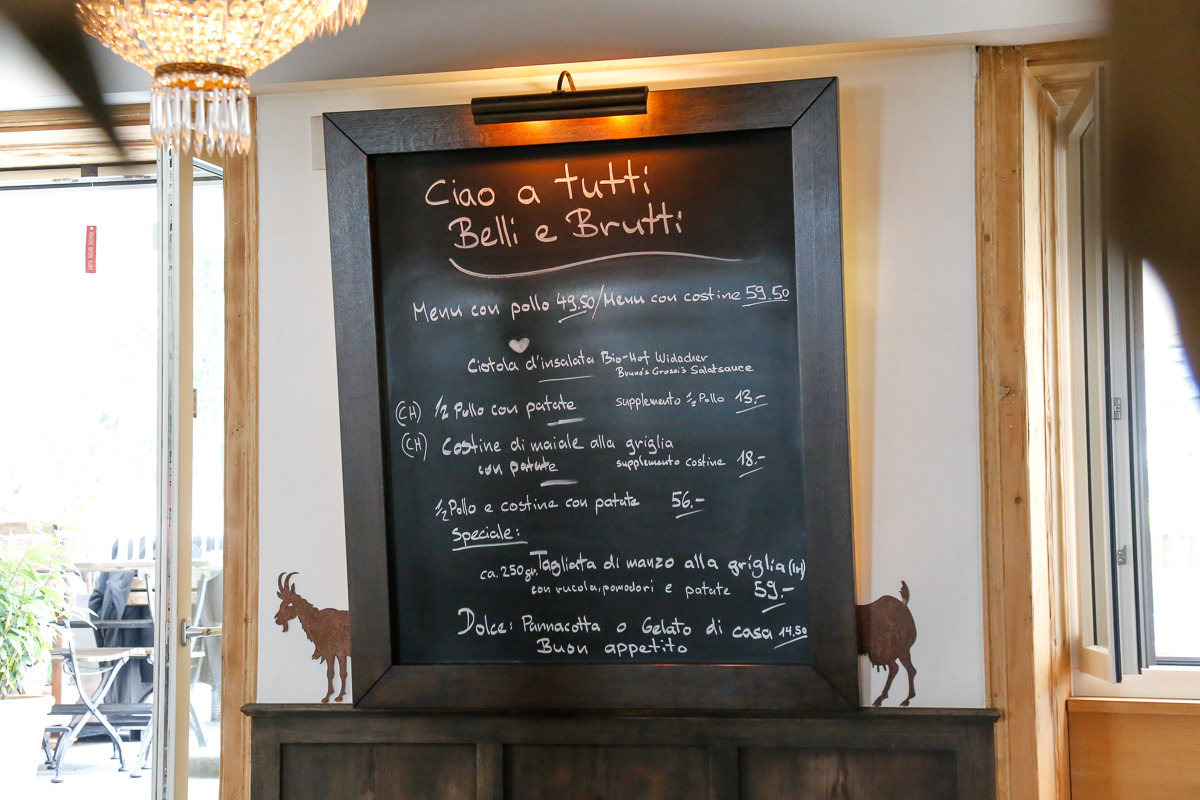 Ciao a tutti
Belli e Brutti
Menu con pollo 49.50/Menu con costine 59.50
Ciotola d'insalata Bio-Hof Widacher
Bruno's Grossi's Salatsauce
(CH) ½ Pollo con patate supplemento ½ Pollo 13.-
(CH) Costine di maiale alla griglia
con patate supplemento costine 18.-
½ Pollo e costine con patate 56.-
Speciale:
ca. 250gr. Tagliata di manzo alla griglia
con rucola, pomodori e patate 59.-
Dolce: Pannacotta o Gelato di casa 14.50
Buon appetito